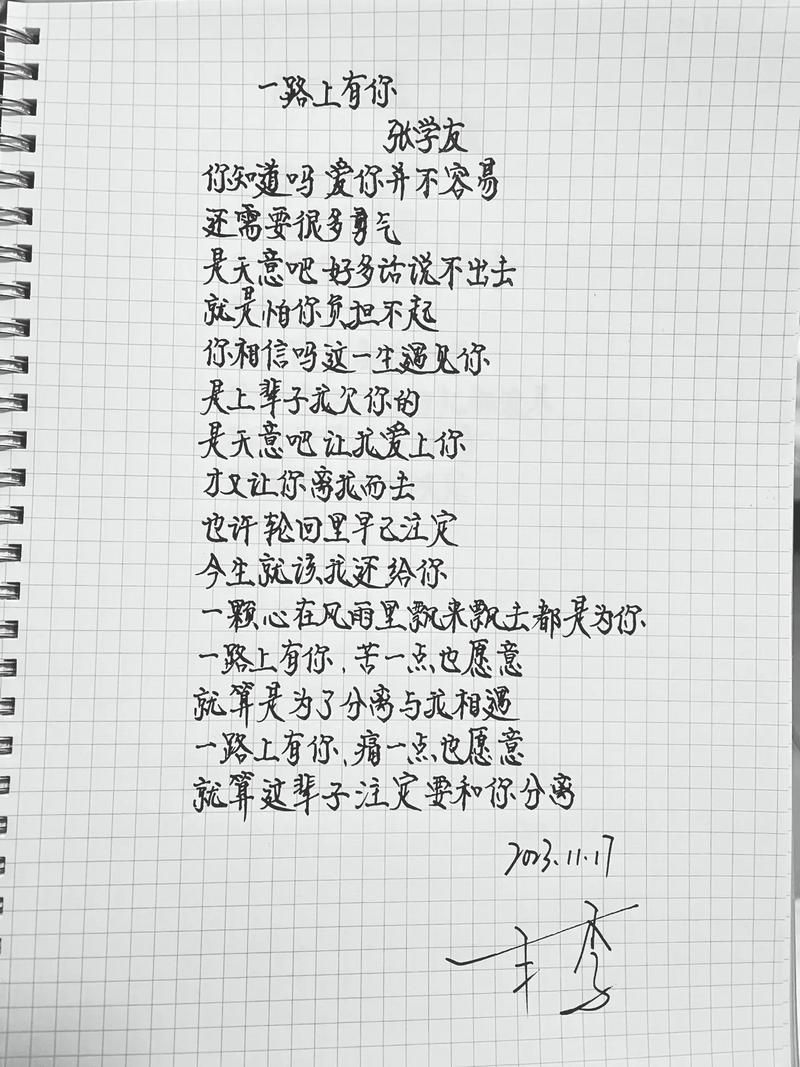 一路上有你
张学友
你知道吗 爱你并不容易
还需要很多勇气
是天意吧 好多话说不出去
就是怕你负担不起
你相信吗 这一生遇见你
是上辈子我欠你的
是天意吧 让我爱上你
才又让你离我而去
也许轮回里早已注定
今生就该我还给你
一颗心在风雨里飘来飘去都是为你
一路上有你,苦一点也愿意
就算是为了分离与我相遇
一路上有你,痛一点也愿意
就算这辈子注定要和你分离
2023.11.17